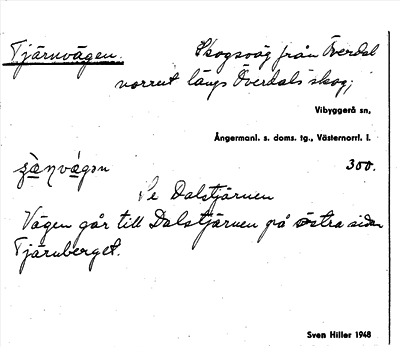 Tjärnvägen. Skogsväg från Överdal
norrut längs Överdals skog;
Vibyggerå sn,
Ångermanl. s. doms. tg., Västernorrl. l.
300.
Se Dalstjärnen
Vägen går till Dalstjärnen på östra sidan
Tjärnberget.
Sven Hiller 1948